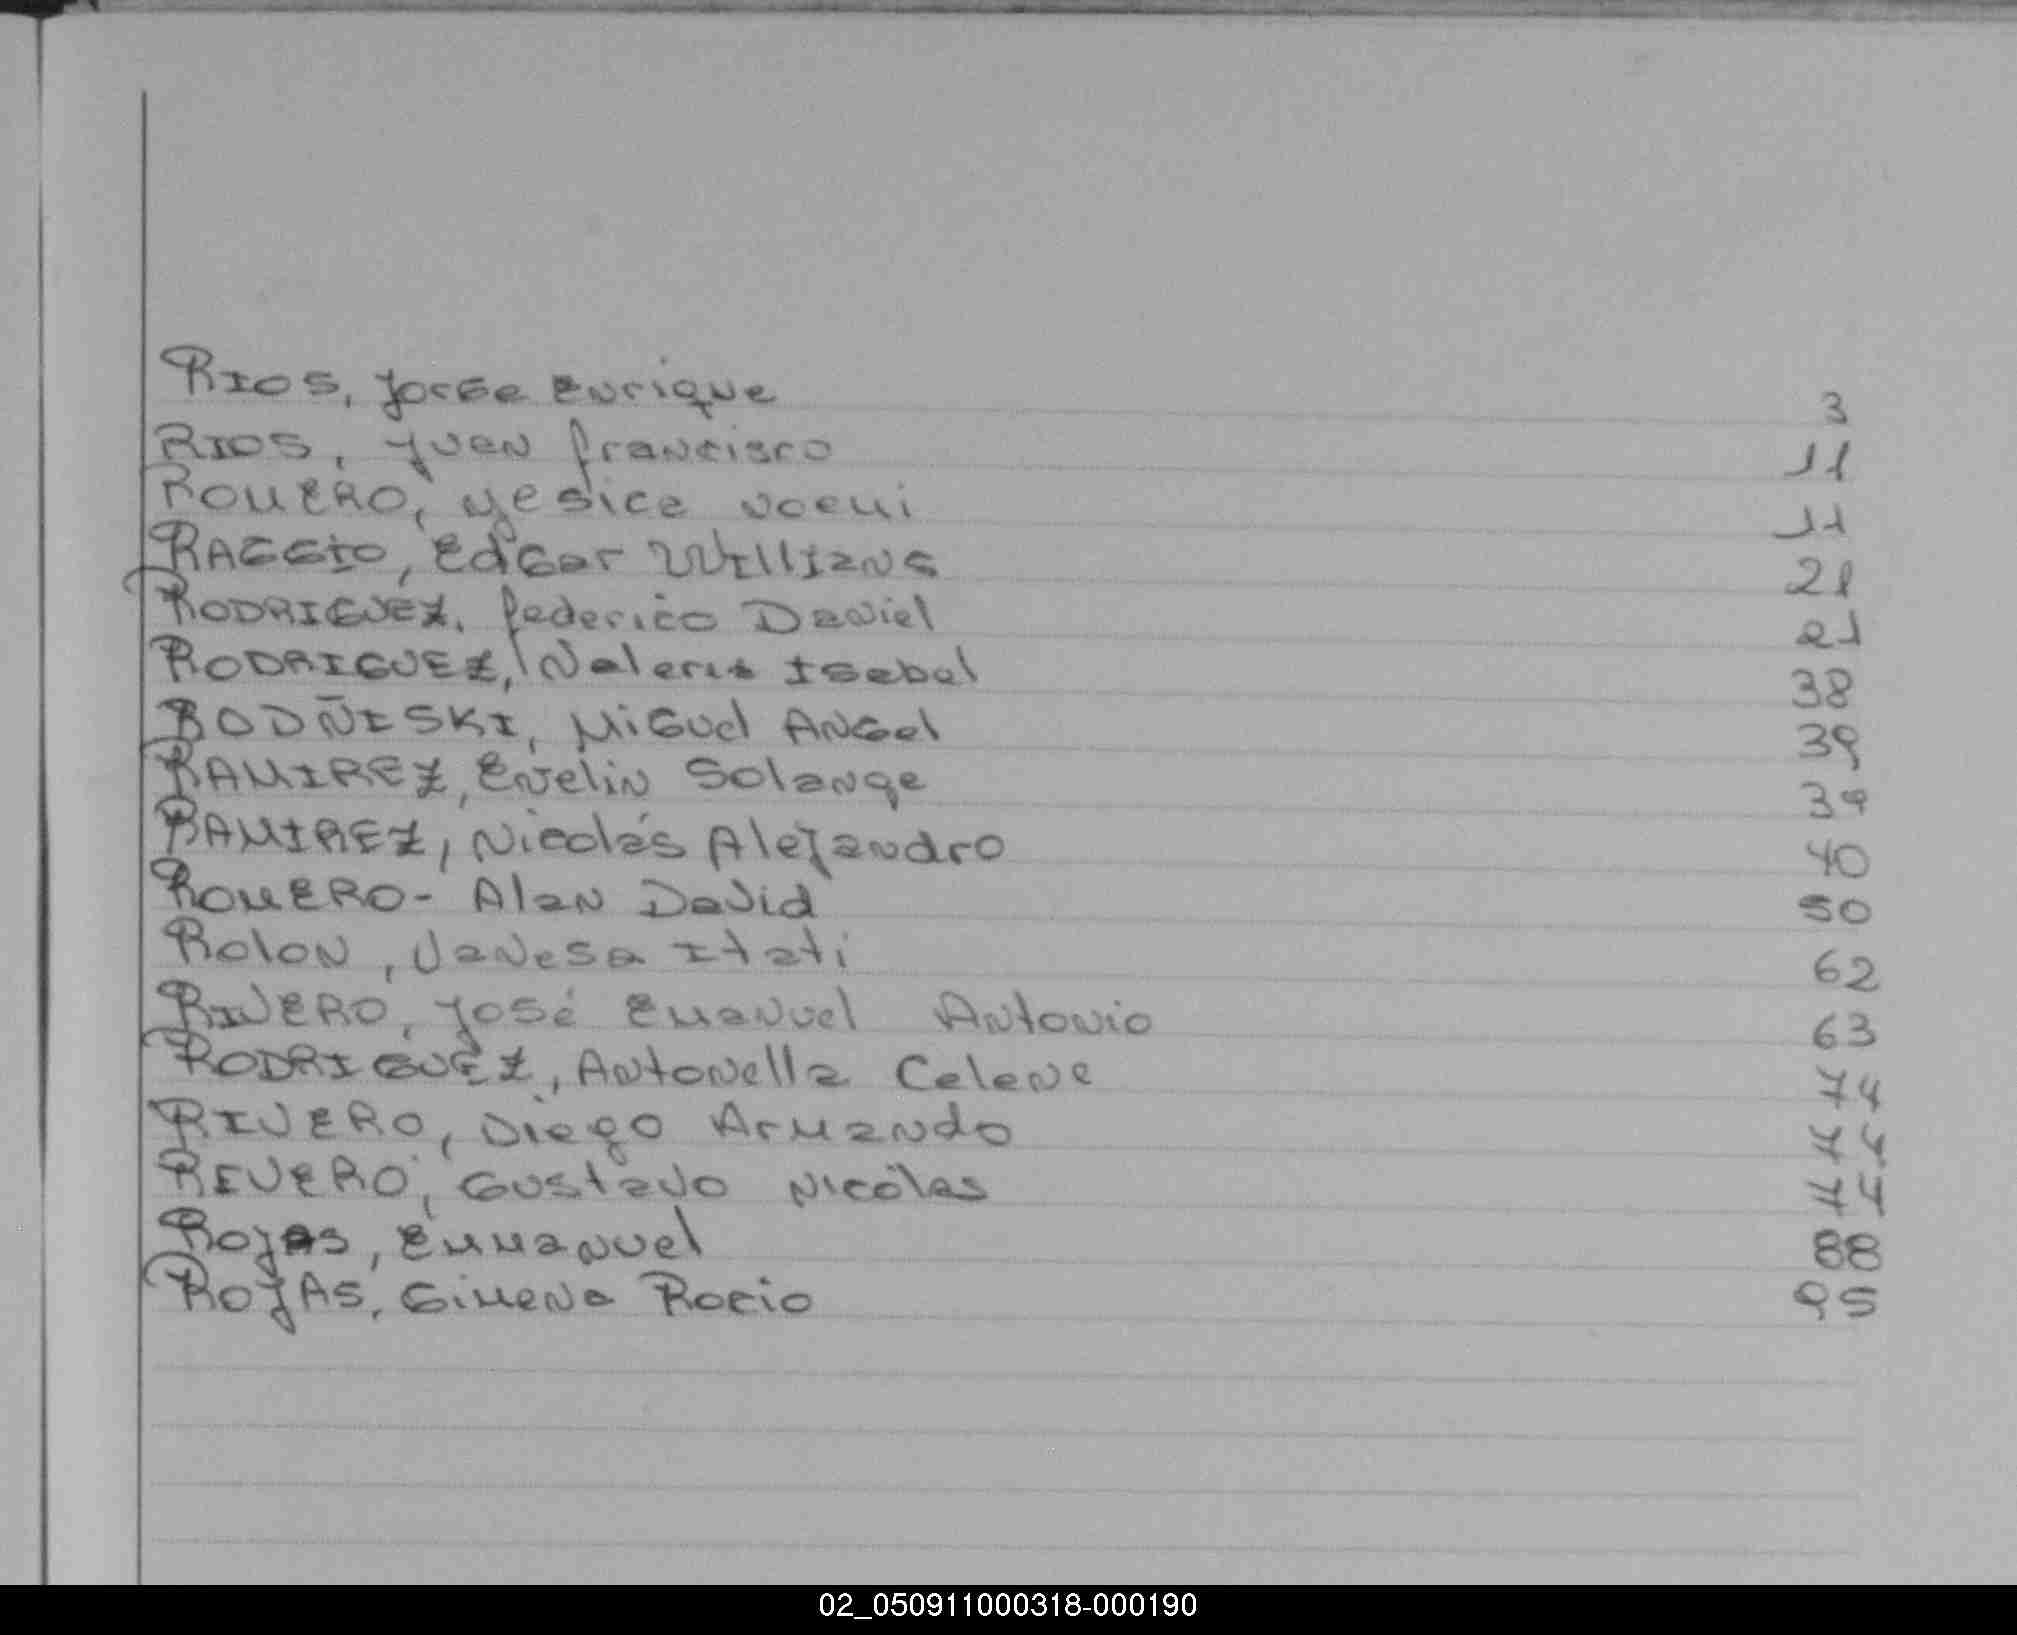 RIOS, Jorge Enrique 3
RIOS, Juan Francisco 11
ROMERO, Yesica Noemi 11
RAGGIO, Edgar Willians 21
RODRIGUEZ, Federico Daniel 21
RODRIGUEZ, Valeria Isabel 38
RODÑISKI, Miguel Angel 39
RAMIREZ, Evelin Solange 39
RAMIREZ, Nicolás Alejandro 40
ROMERO- Alan David 50
Rolon, Vanesa Itati 62
RIVERO, José Emanuel Antonio 63
RODRIGUEZ, Antonella Celene 74
RIVERO, Diego Armando 77
RIVERO, Gustavo Nicolas 77
Rojas, Emmanuel 88
ROJAS, Gimena Rocio 95
02_050911000318-000190